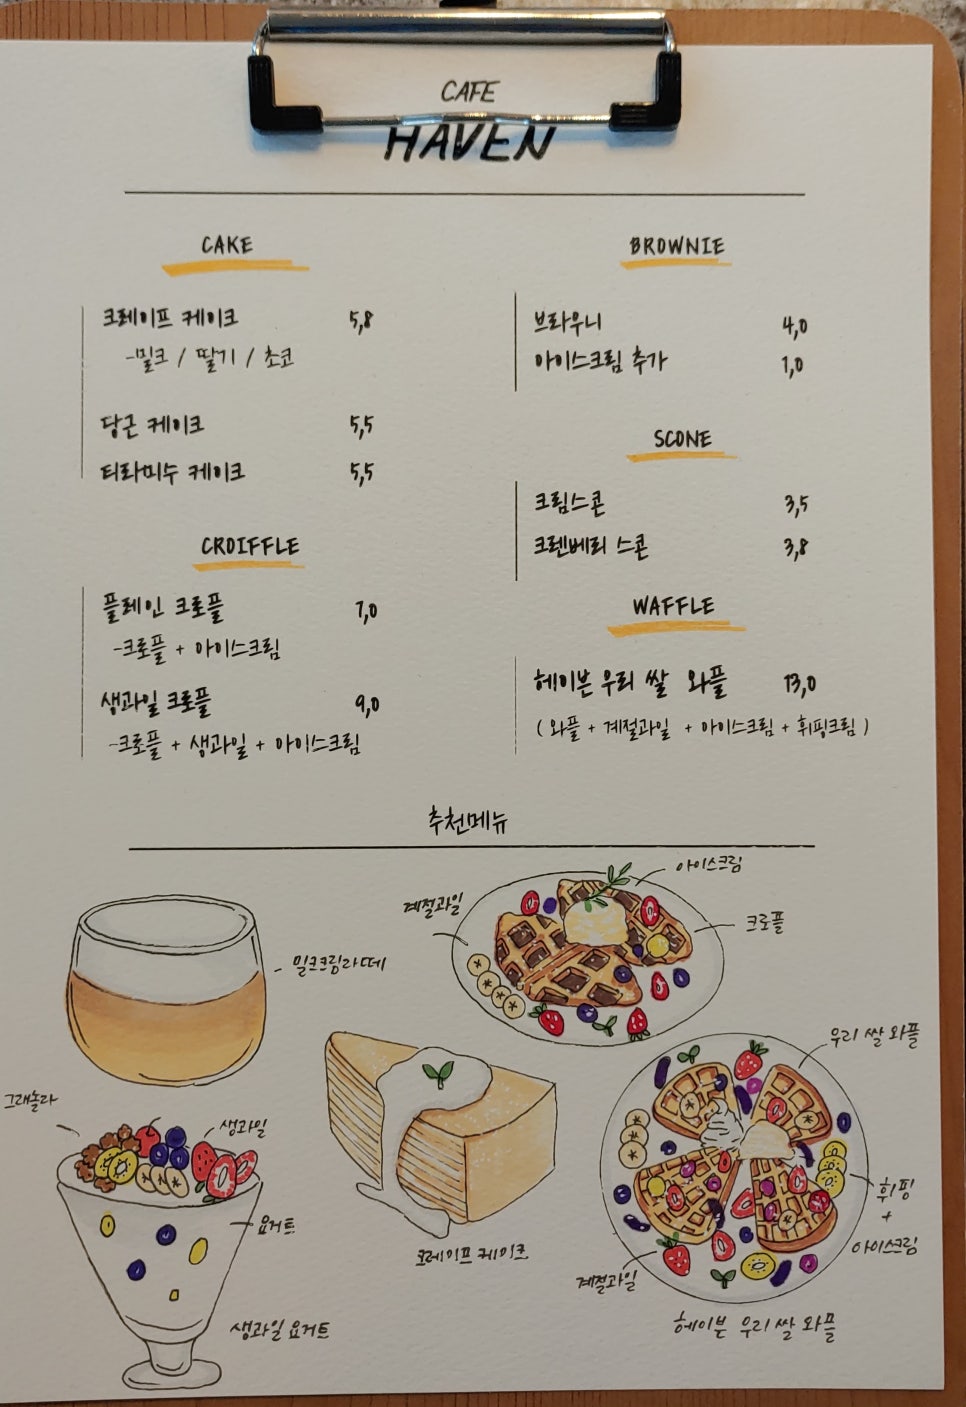 CAFE
HAVEN
CAKE
크레이프 케이크 5,8
-밀크 / 딸기 / 초코
당근 케이크 5,5
티라미수 케이크 5,5
CROIFFLE
플레인 크로플 7,0
-크로플 + 아이스크림
생과일 크로플 9,0
-크로플 + 생과일 + 아이스크림
BROWNIE
브라우니 4,0
아이스크림 추가 1,0
SCONE
크림스콘 3,5
크렌베리 스콘 3,8
WAFFLE
헤이븐 우리 쌀 와플 13,0
( 와플 + 계절과일 + 아이스크림 + 휘핑크림 )
추천메뉴
밀크크림라떼
계절과일
아이스크림
크로플
그래놀라
생과일
요거트
생과일 요거트
크레이프 케이크
우리 쌀 와플
휘핑
+
아이스크림
계절과일
헤이븐 우리 쌀 와플